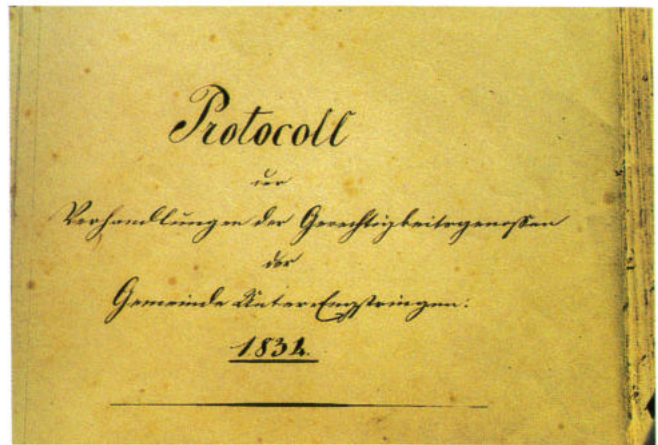 Protocoll
der
Verhandlungen der Gerechtigkeitsgenossen
der
Gemeinde Unter-Engstringen:
1834.